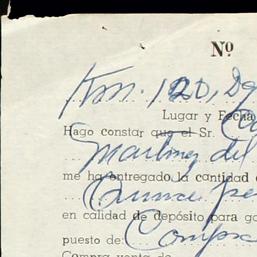 Nº
Km. 120, De
Lugar y Fecha
Hago constar que el Sr.
Martinez del
me ha entregado la cantidad
Quince pe
en calidad de depósito para ga
puesto de: Compra
Compra venta de